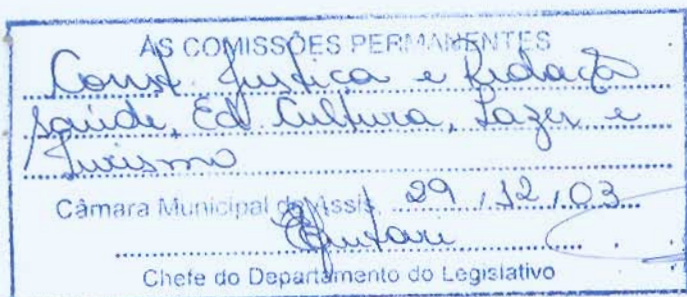 AS COMISSÕES PERMANENTES
Const. Justiça e Redação
Saúde, Ed. Cultura, Lazer e
Turismo
Câmara Municipal de Assis, 29, 12, 03
Chefe do Departamento do Legislativo